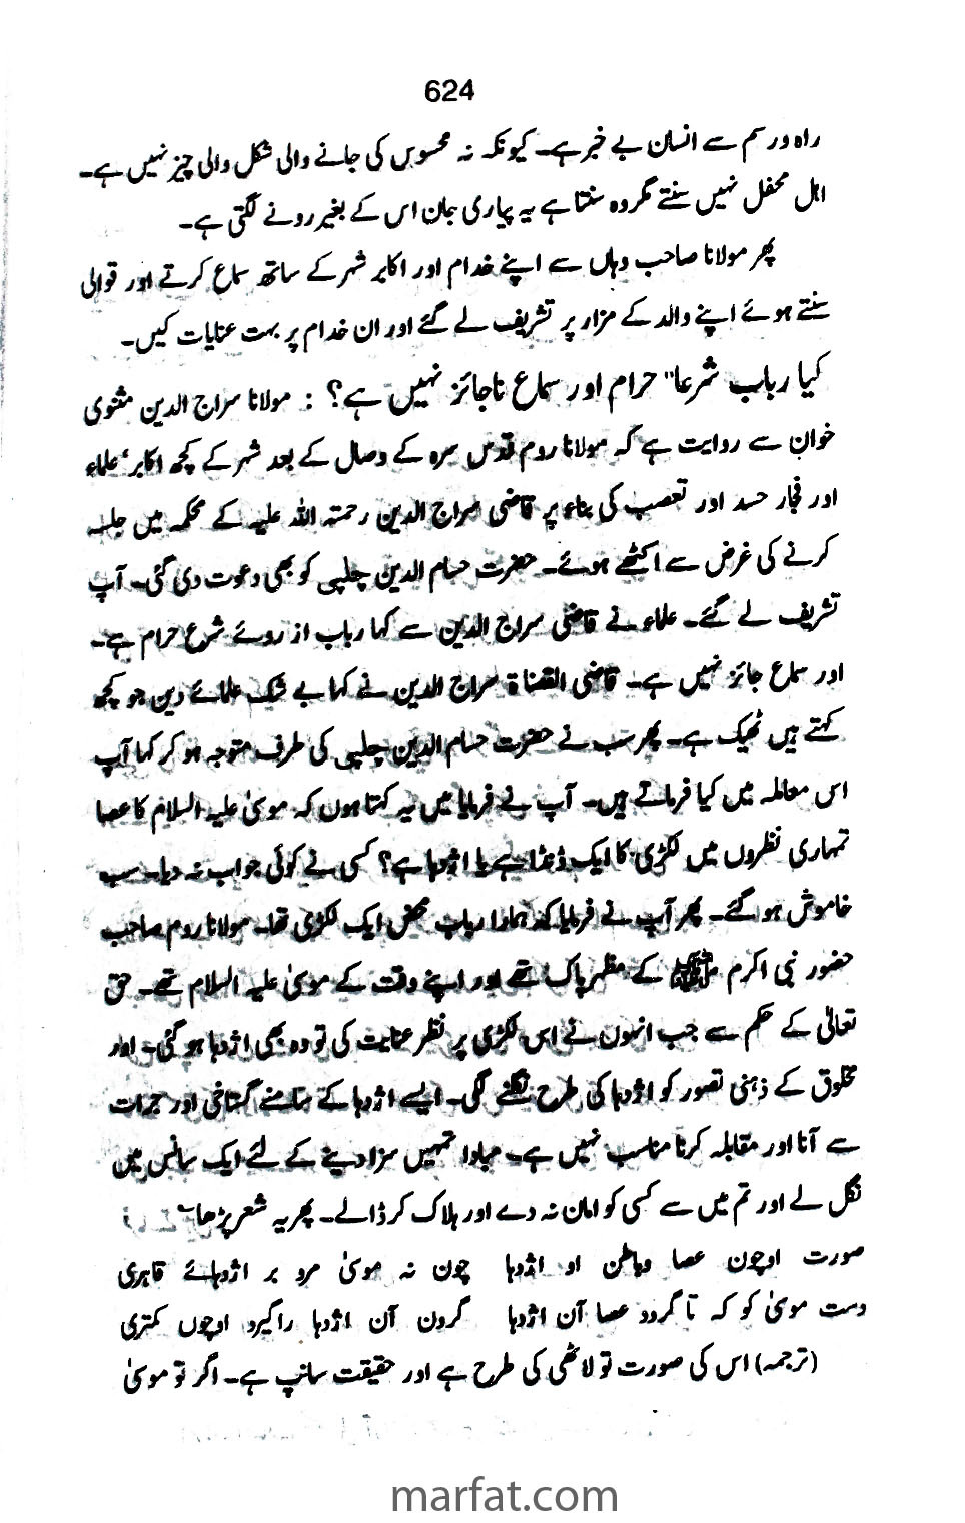 624
راہ و رسم سے انسان بے خبر ہے۔ کیونکہ نہ محسوس کی جانے والی شکل والی چیز نہیں ہے۔
اہل محفل نہیں سنتے مگر وہ سنتا ہے یہ پیاری جان اس کے بغیر رونے لگتی ہے۔
پھر مولانا صاحب وہاں سے اپنے خدام اور اکابر شہر کے ساتھ سماع کرتے اور قوالی
سنتے ہوئے اپنے والد کے مزار پر تشریف لے گئے اور ان خدام پر بہت عنایات کیں۔
کیا رباب شرعا" حرام اور سماع ناجائز نہیں ہے؟ : مولانا سراج الدین مثنوی
خوان سے روایت ہے کہ مولانا روم قدس سرہ کے وصال کے بعد شہر کے کچھ اکابر، علماء
اور فجار حسد اور تعصب کی بناء پر قاضی سراج الدین رحمتہ اللہ علیہ کے محکمہ میں جلسہ
کرنے کی غرض سے اکٹھے ہوئے۔ حضرت حسام الدین چلپی کو بھی دعوت دی گئی۔ آپ
تشریف لے گئے۔ علماء نے قاضی سراج الدین سے کہا رباب از روئے شرع حرام ہے۔
اور سماع جائز نہیں ہے۔ قاضی القضاۃ سراج الدین نے کہا بے شک علمائے دین جو کچھ
کہتے ہیں ٹھیک ہے۔ پھر سب نے حضرت حسام الدین چلپی کی طرف متوجہ ہو کر کہا آپ
اس معاملہ میں کیا فرماتے ہیں۔ آپ نے فرمایا میں یہ کہتا ہوں کہ موسیٰ علیہ السلام کا عصا
تمہاری نظروں میں لکڑی کا ایک ڈنڈا ہے یا اژدہا ہے؟ کسی نے کوئی جواب نہ دیا۔ سب
خاموش ہو گئے۔ پھر آپ نے فرمایا کہ ہمارا رباب محض ایک لکڑی تھا۔ مولانا روم صاحب
حضور نبی اکرم ﷺ کے مظہر پاک تھے اور اپنے وقت کے موسیٰ علیہ السلام تھے۔ حق
تعالیٰ کے حکم سے جب انہوں نے اس لکڑی پر نظر عنایت کی تو وہ بھی اژدہا ہو گئی۔ اور
مخلوق کے ذہنی تصور کو اژدہا کی طرح نگلنے لگی۔ ایسے اژدہا کے سامنے گستاخی اور جرات
سے آنا اور مقابلہ کرنا مناسب نہیں ہے۔ مبادا تمہیں سزا دینے کے لئے ایک سانس میں
نگل لے اور تم میں سے کسی کو امان نہ دے اور ہلاک کر ڈالے۔ پھر یہ شعر پڑھا۔
صورت اوچون عصا وباطن او اژدہا چون نہ موسیٰ مرو بر اژدہائے قاہری
دست موسیٰ کو کہ تا گردد عصا آن اژدہا گردن آن اژدہا راگیرد اوچوں کمتری
(ترجمہ) اس کی صورت تو لاٹھی کی طرح ہے اور حقیقت سانپ ہے۔ اگر تو موسیٰ
marfat.com